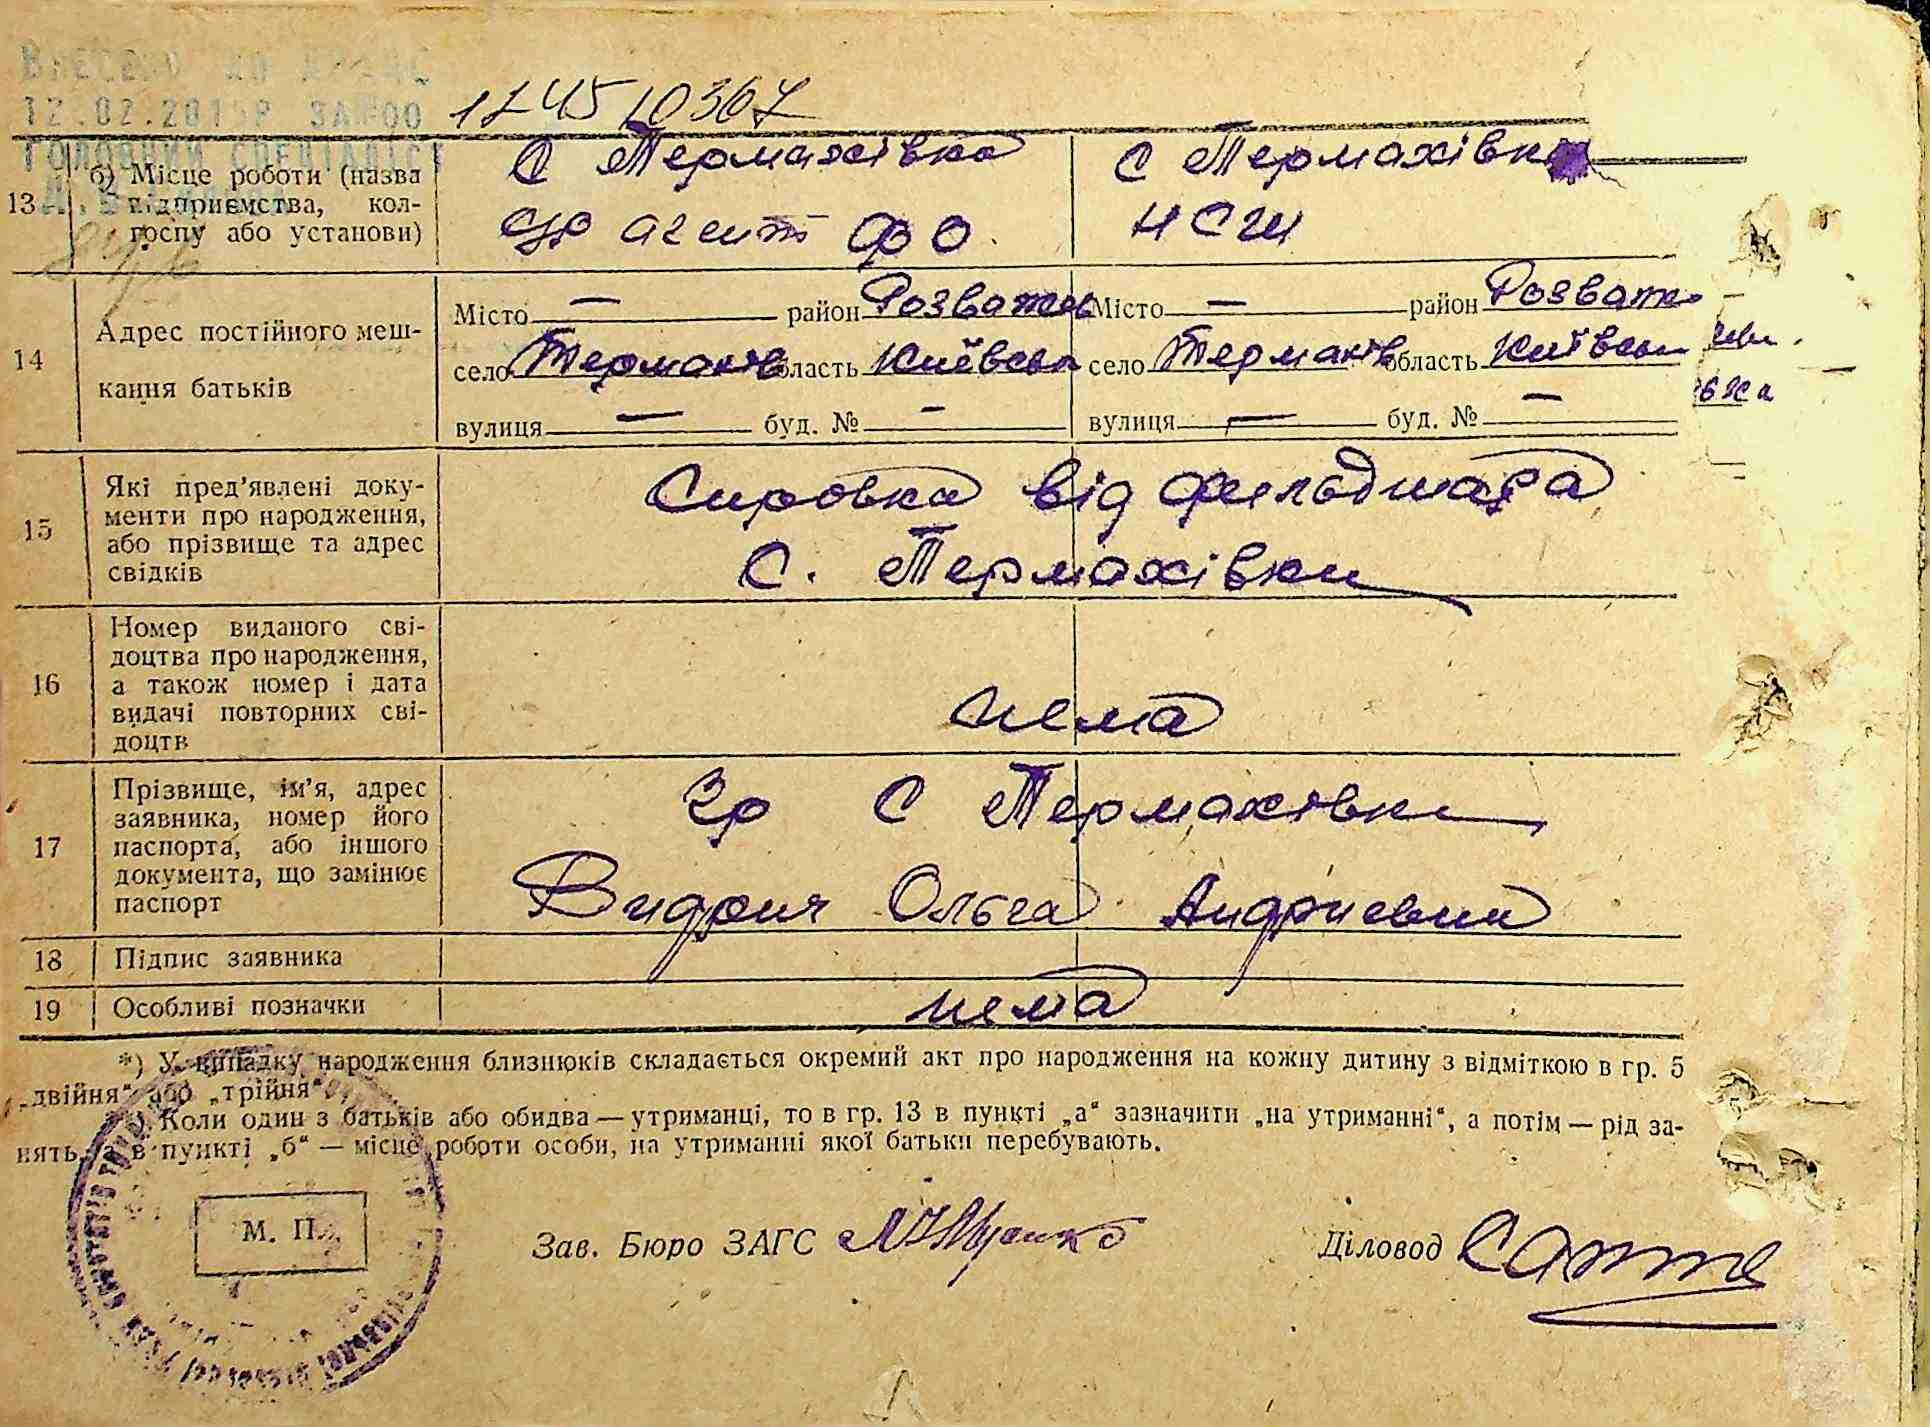 12.02.201 Р
174510367
13 б) Місце роботи (назва підприємства, кол-
госпу або установи)
С Термахівка
агент ФО
С Термахівка
НСШ
14 Адрес постійного меш-
кання батьків
Місто — район Розважев
село Термахів область Київська
вулиця — буд. № —
Місто — район Розваж
село Термахів область Київськ
вулиця — буд. № —
15 Які пред’явлені доку-
менти про народження,
або прізвище та адрес
свідків
Справка від фильдшара
С. Термахівки
16 Номер виданого сві-
доцтва про народження,
а також номер і дата
видачі повторних сві-
доцтв
нема
17 Прізвище, ім’я, адрес
заявника, номер його
паспорта, або іншого
документа, що замінює
паспорт
Гр С Термахівки
Видрич Ольга Андриевна
18 Підпис заявника
19 Особливі позначки
нема
*) У випадку народження близнюків складається окремий акт про народження на кожну дитину з відміткою в гр. 5
„двійня“ або „трійня“.
Коли один з батьків або обидва — утриманці, то в гр. 13 в пункті „а“ зазначити „на утриманні“, а потім — рід за-
нять, а в пункті „б“ — місце роботи особи, на утриманні якої батьки перебувають.
М. П.
Зав. Бюро ЗАГС
Діловод